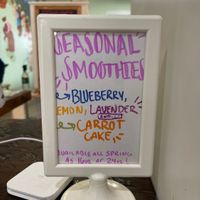 SEASONAL
SMOOTHIES
BLUEBERRY,
LEMON, LAVENDER
CARROT
CAKE
AVAILABLE ALL SPRING